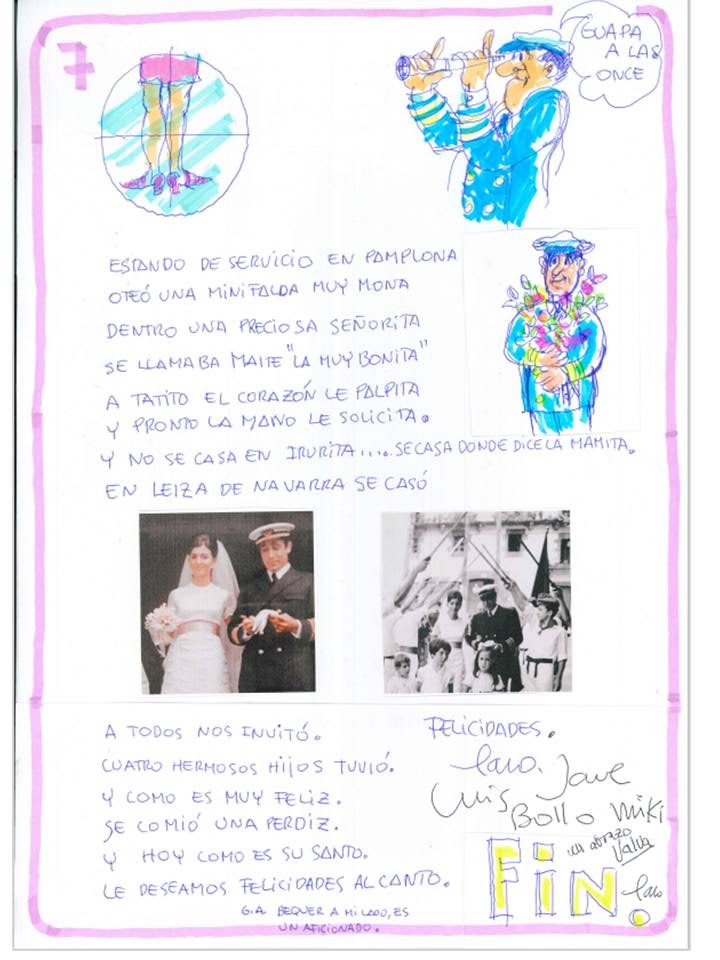 7
GUAPA
A LAS
ONCE
ESTANDO DE SERVICIO EN PAMPLONA
OTEÓ UNA MINIFALDA MUY MONA
DENTRO UNA PRECIOSA SEÑORITA
SE LLAMABA MAITE "LA MUY BONITA"
A TATITO EL CORAZÓN LE PALPITA
Y PRONTO LA MANO LE SOLICITA.
Y NO SE CASA EN IRURITA..... SE CASA DONDE DICE LA MAMITA.
EN LEIZA DE NAVARRA SE CASÓ
A TODOS NOS INVITÓ.
CUATRO HERMOSOS HIJOS TUVIÓ.
Y COMO ES MUY FELIZ.
SE COMIÓ UNA PERDIZ.
Y HOY COMO ES SU SANTO.
LE DESEAMOS FELICIDADES AL CANTO.
G.A. BEQUER A MI LADO, ES
UN AFICIONADO.
FELICIDADES.
Luis
Bollo Miki
un abrazo
FIN.